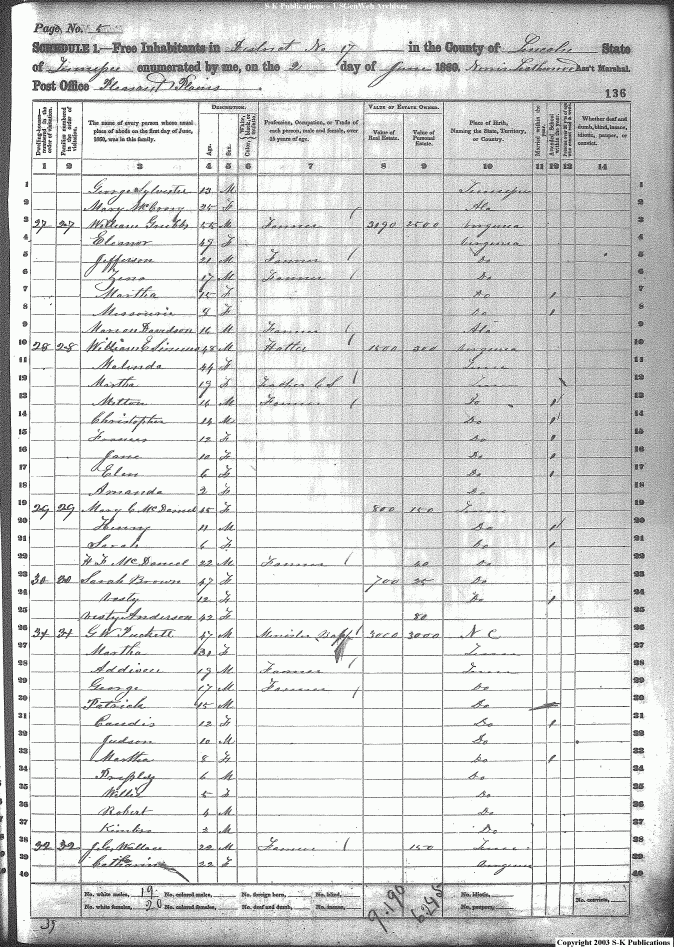 S-K Publications - UsGenWeb Archives
Page No. 5
SCHEDULE 1.—Free Inhabitants in District No 17 in the County of Lincoln State
of Tennessee enumerated by me, on the 2 day of June 1860. Ass't Marshal.
Post Office Pleasant Plains
136
DESCRIPTION. VALUE OF ESTATE OWNED.
Dwelling-houses—numbered in the order of visitation. Families numbered in the order of visitation. The name of every person whose usual place of abode on the first day of June, 1860, was in this family. Age. Sex. Color, White, black, or mulatto. Profession, Occupation, or Trade of each person, male and female, over 15 years of age. Value of Real Estate. Value of Personal Estate. Place of Birth, Naming the State, Territory, or Country. Married within the year. Attended School within the year. Whether deaf and dumb, blind, insane, idiotic, pauper, or convict.
1 2 3 4 5 6 7 8 9 10 11 12 13 14
1 George Sylvester 13 M Tennessee 1
2 Mary McCrory 25 F Ala 2
3 27 27 William Grubbs 55 M Farmer 3190 2500 Virginia 3
4 Eleanor 49 F Virginia 4
5 Jefferson 21 M Farmer Do 5
6 Zeno 17 M Farmer Do 6
7 Martha 15 F Do 7
8 Missouri 9 F Do 8
9 Marion Davidson 16 M Farmer Ala 9
10 28 28 William E Simms 48 M Hatter 1500 300 Virginia 10
11 Malinda 44 F Tenn 11
12 Martha 19 F C S Tenn 12
13 Milton 16 M Farmer Do 13
14 Christopher 14 M Do 14
15 Frances 12 F Do 15
16 Jane 10 F Do 16
17 Elen 6 F Do 17
18 Amanda 2 F Do 18
19 29 29 Mary C McDaniel 35 F 800 150 Tenn 19
20 Henry 11 M Do 20
21 Sarah 6 F Do 21
22 H F McDaniel 22 M Farmer Do 22
23 30 30 Sarah Brown 47 F 700 25 Do 23
24 Vesty 12 F Do 24
25 Vesty Anderson 42 F 80 25
26 31 31 G W Puckett 47 M Minister Bapt 3000 3000 N C 26
27 Martha F Tenn 27
28 Addison 19 M Farmer Tenn 28
29 George 17 M Farmer Do 29
30 Patrick 15 M Do 30
31 Candis 12 F Do 31
32 Judson 10 M Do 32
33 Martha 8 F Do 33
34 6 M Do 34
35 Willie 5 F Do 35
36 Robert 4 M Do 36
37 Kimbro 2 M Do 37
38 32 32 J C Wallace 22 M Farmer 150 Tenn 38
39 Catharine 22 F 39
40 40
No. white males, 19 No. colored males, No. foreign born, No. blind, No. idiotic, No. convicts,
No. white females, 20 No. colored females, No. deaf and dumb, No. insane, No. paupers,
9.190 6245
39
Copyright 2003 S-K Publications